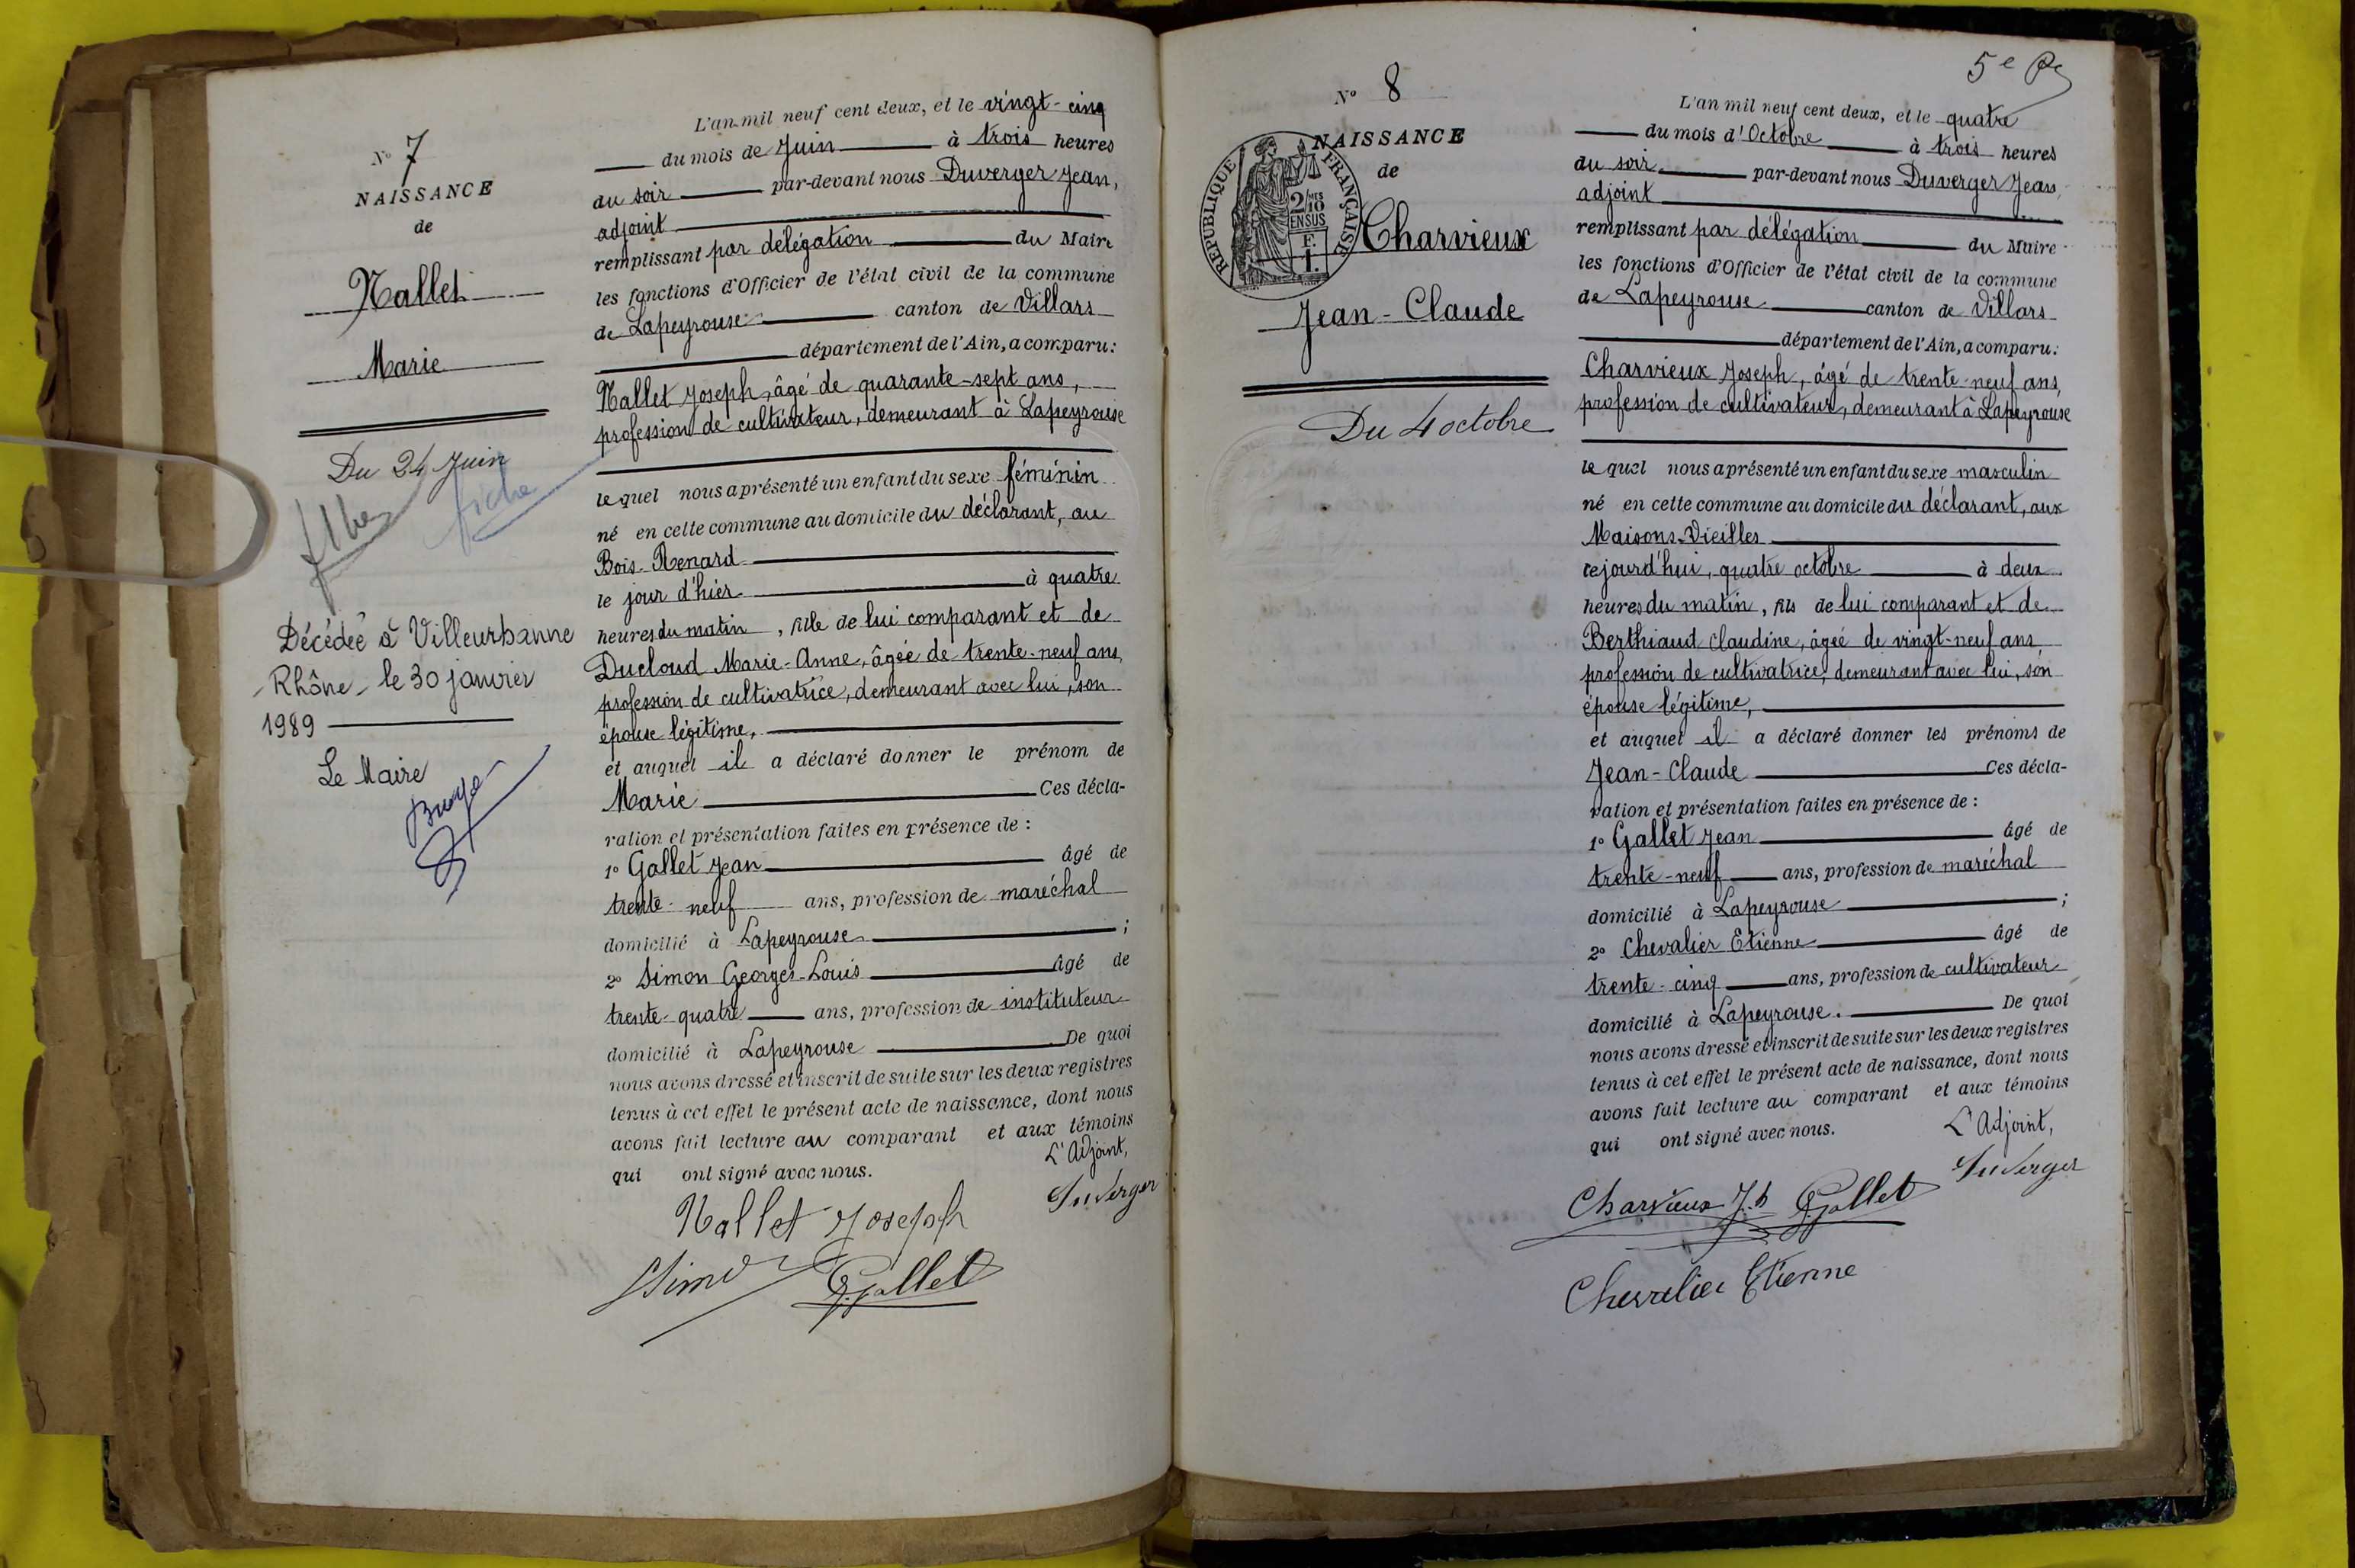 N° 7
NAISSANCE
de
Nallet
Marie
Du 24 Juin
fiche
Décédée à Villeurbanne
- Rhône - le 30 janvier
1989
Le Maire
L'an mil neuf cent deux, et le vingt-cinq
du mois de Juin à trois heures
du soir par-devant nous Duverger Jean,
adjoint
remplissant par délégation du Maire
les fonctions d'Officier de l'état civil de la commune
de Lapeyrouse canton de Villars
département de l'Ain, a comparu:
Nallet Joseph, âgé de quarante-sept ans,
profession de cultivateur, demeurant à Lapeyrouse
lequel nous a présenté un enfant du sexe féminin
né en cette commune au domicile du déclarant, au
Bois-Renard
le jour d'hier à quatre
heures du matin, fille de lui comparant et de
Ducloud Marie-Anne, âgée de trente-neuf ans,
profession de cultivatrice, demeurant avec lui, son
épouse légitime,
et auquel il a déclaré donner le prénom de
Marie Ces décla-
ration et présentation faites en présence de :
1° Gallet Jean âgé de
trente-neuf ans, profession de maréchal
domicilié à Lapeyrouse ;
2° Simon Georges-Louis âgé de
trente-quatre ans, profession de instituteur
domicilié à Lapeyrouse De quoi
nous avons dressé et inscrit de suite sur les deux registres
tenus à cet effet le présent acte de naissance, dont nous
avons fait lecture au comparant et aux témoins
qui ont signé avec nous. L'Adjoint,
Nallet Joseph Duverger
Simon Gallet
5e
N° 8
NAISSANCE
de
RÉPUBLIQUE FRANÇAISE
2/10
EN SUS
Charvieux
Jean-Claude
Du 4 octobre
L'an mil neuf cent deux, et le quatre
du mois d'Octobre à trois heures
du soir par-devant nous Duverger Jean,
adjoint
remplissant par délégation du Maire
les fonctions d'Officier de l'état civil de la commune
de Lapeyrouse canton de Villars
département de l'Ain, a comparu:
Charvieux Joseph, âgé de trente-neuf ans,
profession de cultivateur, demeurant à Lapeyrouse
lequel nous a présenté un enfant du sexe masculin
né en cette commune au domicile du déclarant, aux
Maisons-Vieilles
cejourd'hui, quatre octobre à deux
heures du matin, fils de lui comparant et de
Berthiaud Claudine, âgée de vingt-neuf ans,
profession de cultivatrice, demeurant avec lui, son
épouse légitime,
et auquel il a déclaré donner les prénoms de
Jean-Claude Ces décla-
ration et présentation faites en présence de :
1° Gallet Jean âgé de
trente-neuf ans, profession de maréchal
domicilié à Lapeyrouse ;
2° Chevalier Etienne âgé de
trente-cinq ans, profession de cultivateur
domicilié à Lapeyrouse. De quoi
nous avons dressé et inscrit de suite sur les deux registres
tenus à cet effet le présent acte de naissance, dont nous
avons fait lecture au comparant et aux témoins
qui ont signé avec nous. L'Adjoint,
Charvieux J.h Gallet Duverger
Chevalier Etienne